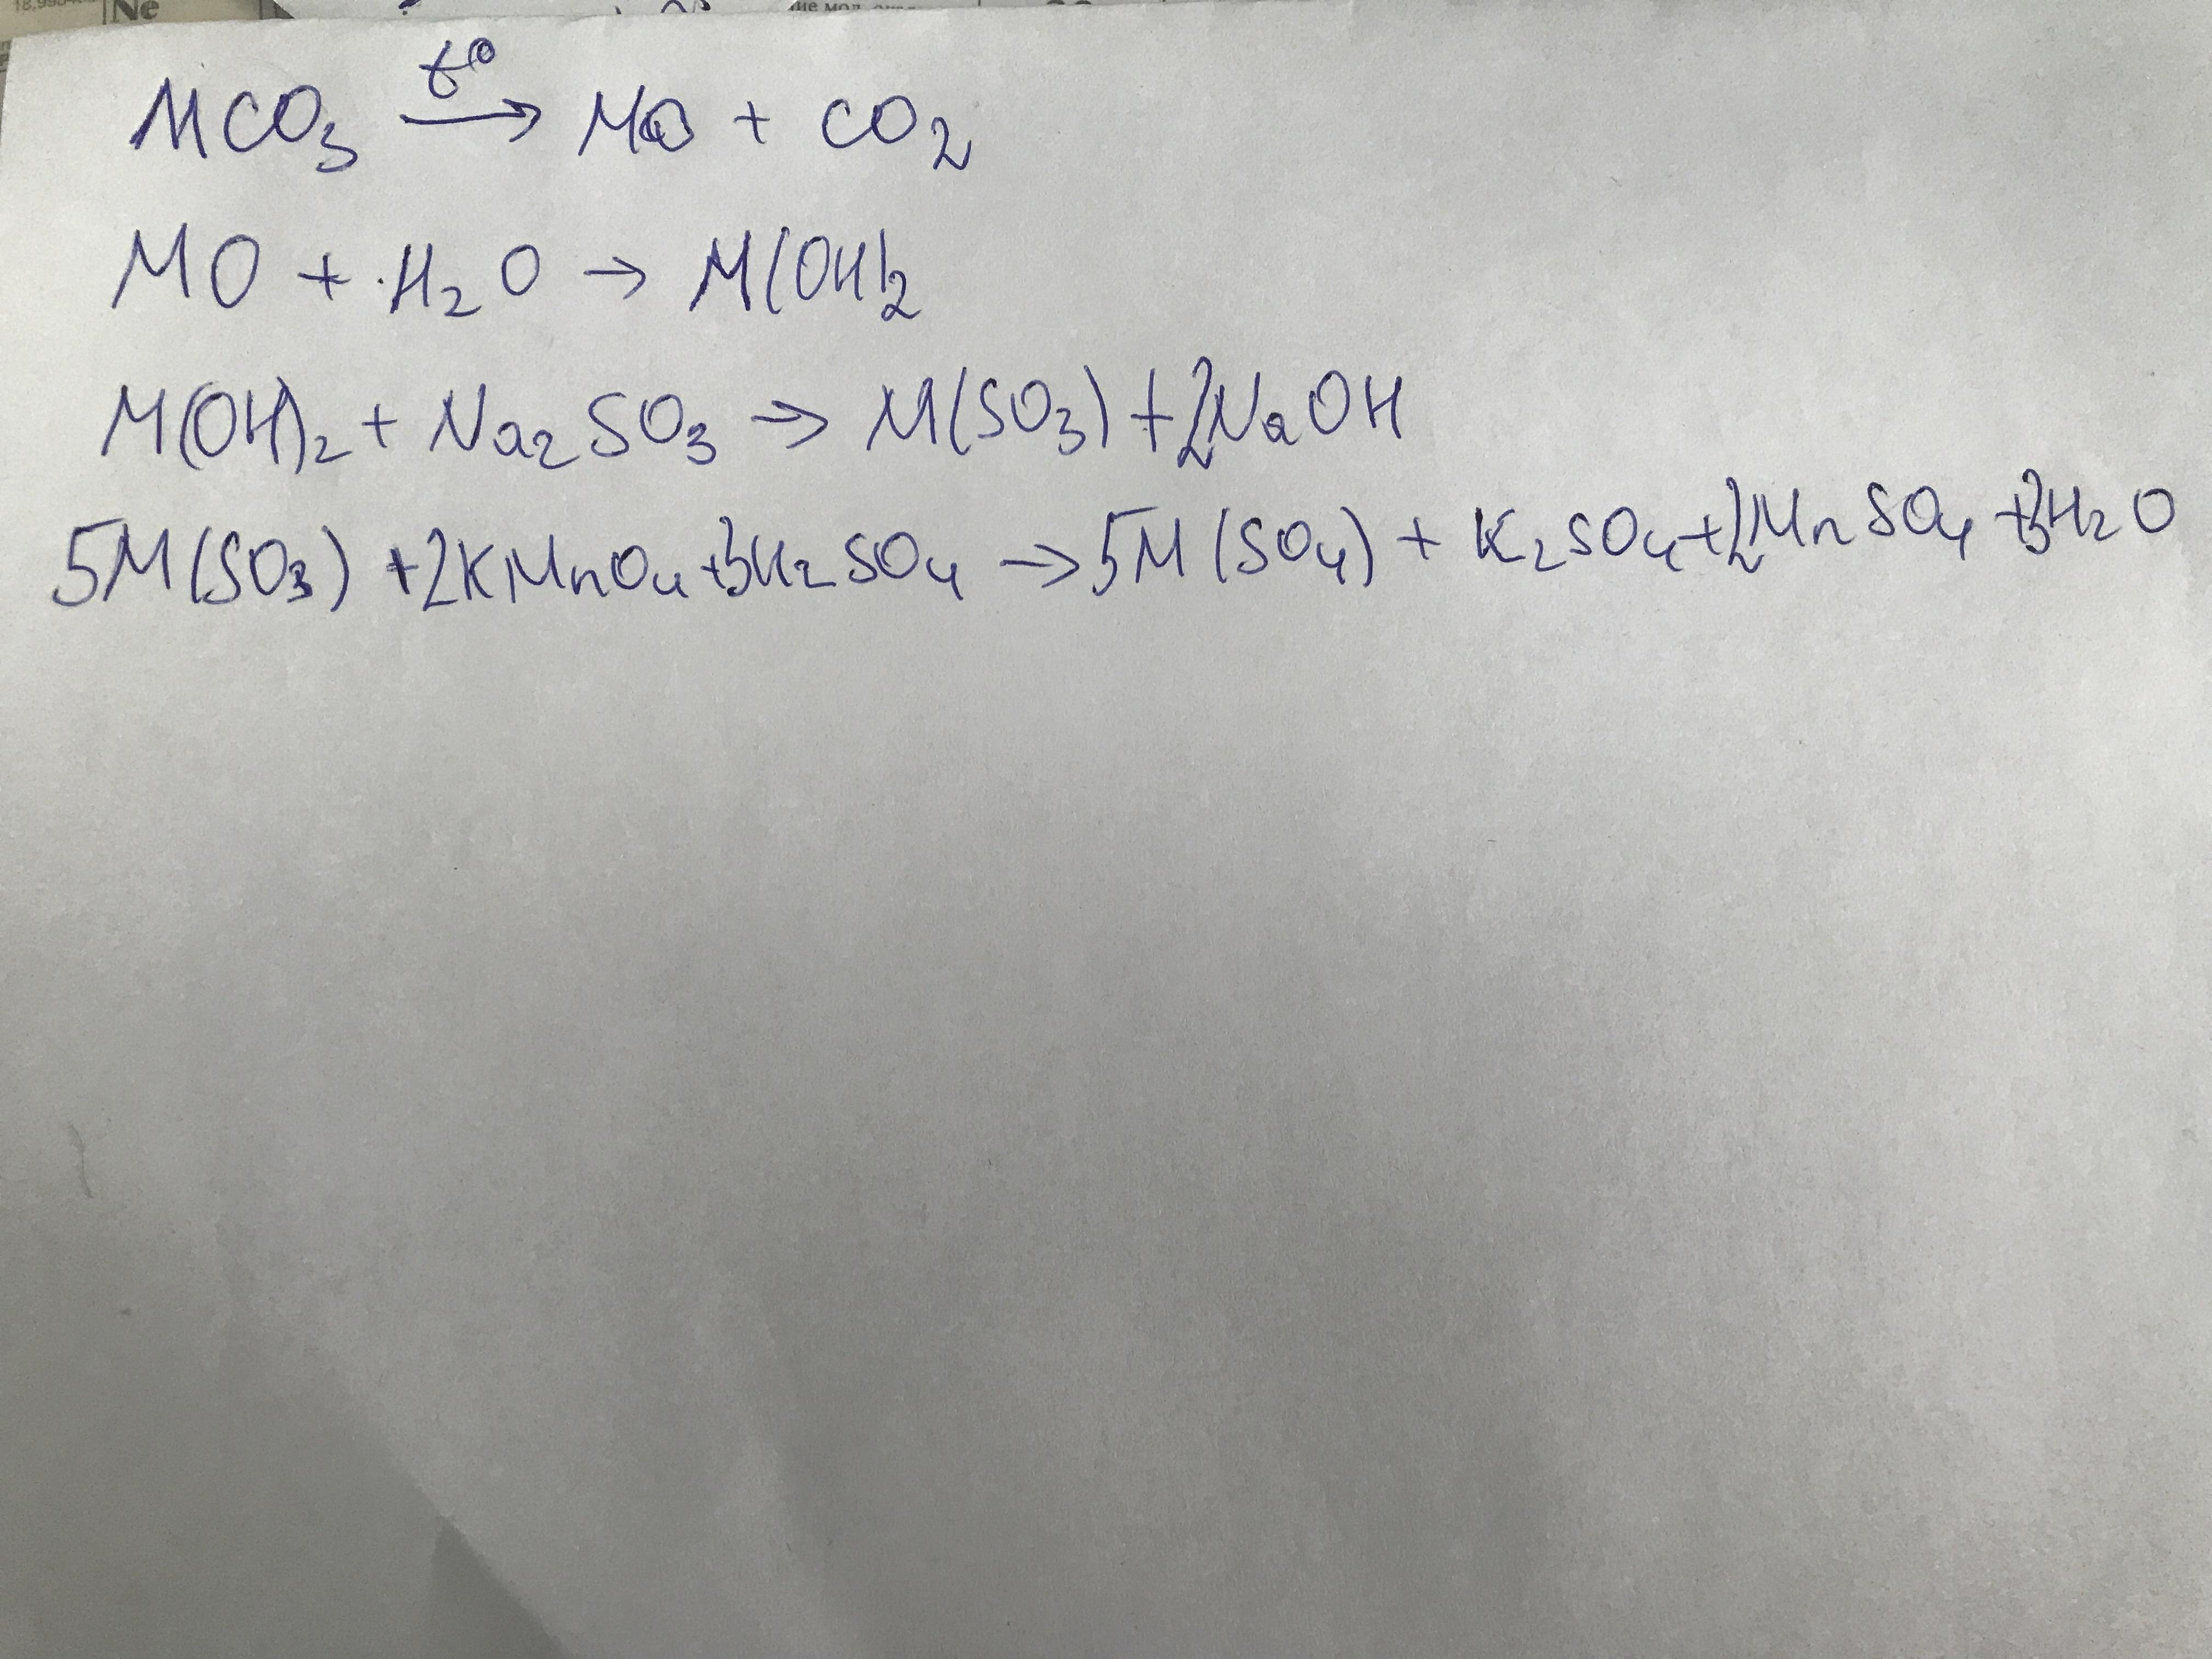 18,998
Ne
MCO₃ t° → MO + CO₂
MO + H₂O → M(OH)₂
M(OH)₂ + Na₂SO₃ → M(SO₃) + 2NaOH
5M(SO₃) + 2KMnO₄ + 3H₂SO₄ → 5M(SO₄) + K₂SO₄ + 2MnSO₄ + 3H₂O